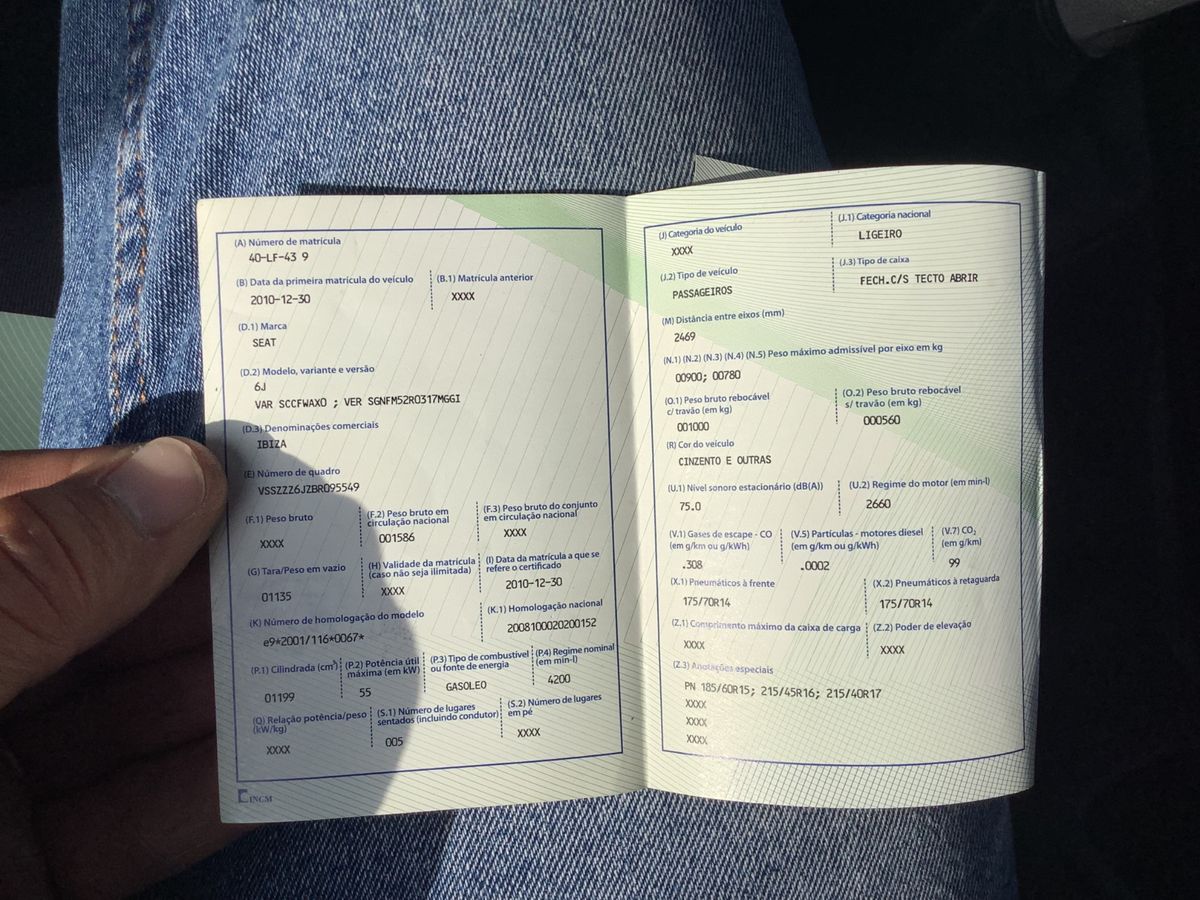 (A) Número de matrícula
40-LF-43 9
(B) Data da primeira matrícula do veículo
(B.1) Matrícula anterior
2010-12-30
XXXX
(D.1) Marca
SEAT
(D.2) Modelo, variante e versão
6J
VAR SCCFWAX0 ; VER SGNFM52R0317MGGI
(D.3) Denominações comerciais
IBIZA
(E) Número de quadro
VSSZZZ6JZBR095549
(F.1) Peso bruto
(F.2) Peso bruto em
circulação nacional
(F.3) Peso bruto do conjunto
em circulação nacional
XXXX
001586
XXXX
(G) Tara/Peso em vazio
(H) Validade da matrícula
(caso não seja ilimitada)
(I) Data da matrícula a que se
refere o certificado
01135
XXXX
2010-12-30
(K) Número de homologação do modelo
(K.1) Homologação nacional
e9*2001/116*0067*
2008100020200152
(P.1) Cilindrada (cm³)
(P.2) Potência útil
máxima (em kW)
(P.3) Tipo de combustível
ou fonte de energia
(P.4) Regime nominal
(em min-l)
01199
55
GASOLEO
4200
(Q) Relação potência/peso
(kW/kg)
(S.1) Número de lugares
sentados (incluindo condutor)
(S.2) Número de lugares
em pé
XXXX
005
XXXX
INCM
(J) Categoria do veículo
(J.1) Categoria nacional
XXXX
LIGEIRO
(J.2) Tipo de veículo
(J.3) Tipo de caixa
PASSAGEIROS
FECH.C/S TECTO ABRIR
(M) Distância entre eixos (mm)
2469
(N.1) (N.2) (N.3) (N.4) (N.5) Peso máximo admissível por eixo em kg
00900; 00780
(O.1) Peso bruto rebocável
c/ travão (em kg)
(O.2) Peso bruto rebocável
s/ travão (em kg)
001000
000560
(R) Cor do veículo
CINZENTO E OUTRAS
(U.1) Nível sonoro estacionário (dB(A))
(U.2) Regime do motor (em min-l)
75.0
2660
(V.1) Gases de escape - CO
(em g/km ou g/kWh)
(V.5) Partículas - motores diesel
(em g/km ou g/kWh)
(V.7) CO₂
(em g/km)
.308
.0002
99
(X.1) Pneumáticos à frente
(X.2) Pneumáticos à retaguarda
175/70R14
175/70R14
(Z.1) Comprimento máximo da caixa de carga
(Z.2) Poder de elevação
XXXX
XXXX
(Z.3) Anotações especiais
PN 185/60R15; 215/45R16; 215/40R17
XXXX
XXXX
XXXX